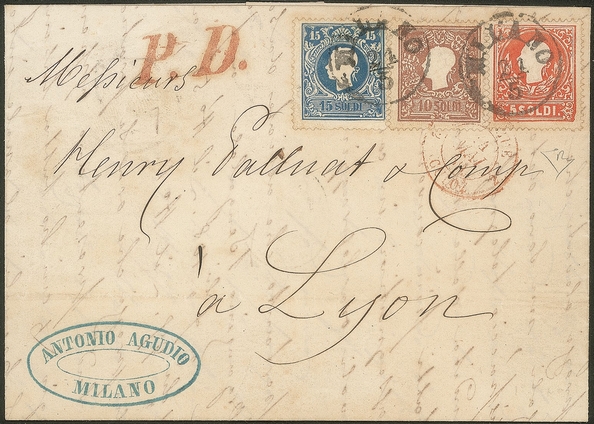 P.D.
15 15
15 SOLDI
10 SOLDI
5 SOLDI
MILANO
MILANO
Messieurs
Henry Palluat & Comp
à Lyon
ANTONIO AGUDIO
MILANO